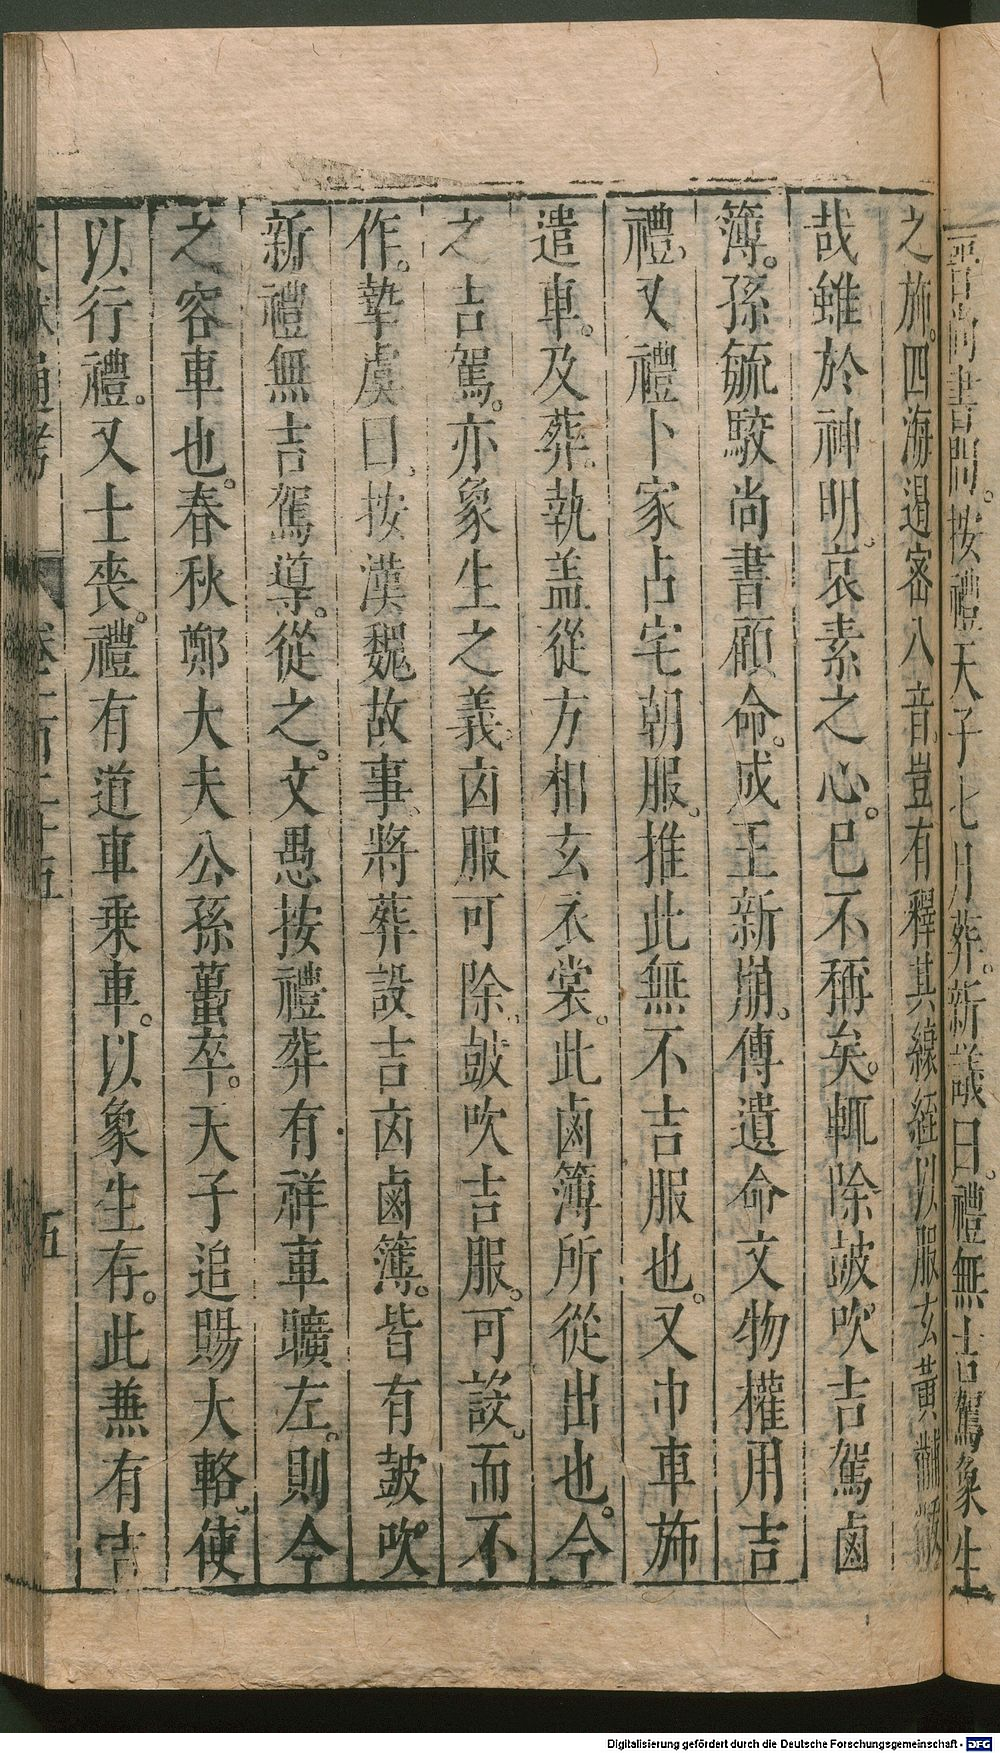 尚書問按禮天子七月葬新議曰禮無吉駕象生
之施四海遏密八音豈有釋其縗絰以服玄黃黼黻
哉雖於神明哀素之心已不稱矣輒除鼓吹吉駕鹵
簿孫毓駮尚書顧命成王新崩傳遺命文物權用吉
禮又禮卜家占宅朝服推此無不吉服也又巾車施
遣車及葬執盖從方相玄衣裳此鹵簿所從出也今
之吉駕亦象生之義凶服可除鼓吹吉服可設而不
作摯虞曰按漢魏故事將葬設吉凶鹵簿皆有鼓吹
新禮無吉駕導從之文愚按禮葬有祥車曠左則今
之容車也春秋鄭大夫公孫蠆卒天子追賜大輅使
以行禮又士喪禮有道車乘車以象生存此兼有吉
文獻通考 卷一百二十五 五
Digitalisierung gefördert durch die Deutsche Forschungsgemeinschaft - DFG